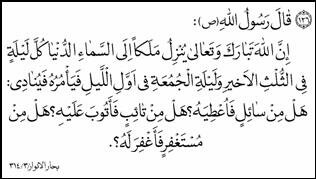 (١٢٦) قَالَ رَسُولُ اللهِ (ص):
إِنَّ اللهَ تَبَارَكَ وَتَعَالىٰ يُنْزِلُ مَلَكاً إِلَى السَّمَاءِ الدُّنْيَا كُلَّ لَيْلَةٍ
فِى الثُّلُثِ الْاَخِيرِ وَلَيْلَةِ الْجُمُعَةِ فِى اَوَّلِ اللَّيْلِ فَيَأْمُرُهُ فَيُنَادِى:
هَلْ مِنْ سَائِلٍ فَاُعْطِيَهُ؟ هَلْ مِنْ تَائِبٍ فَأَتُوبَ عَلَيْهِ؟ هَلْ مِنْ
مُسْتَغْفِرٍ فَأَغْفِرَ لَهُ؟.
بحار الانوار/٣/٣١٤